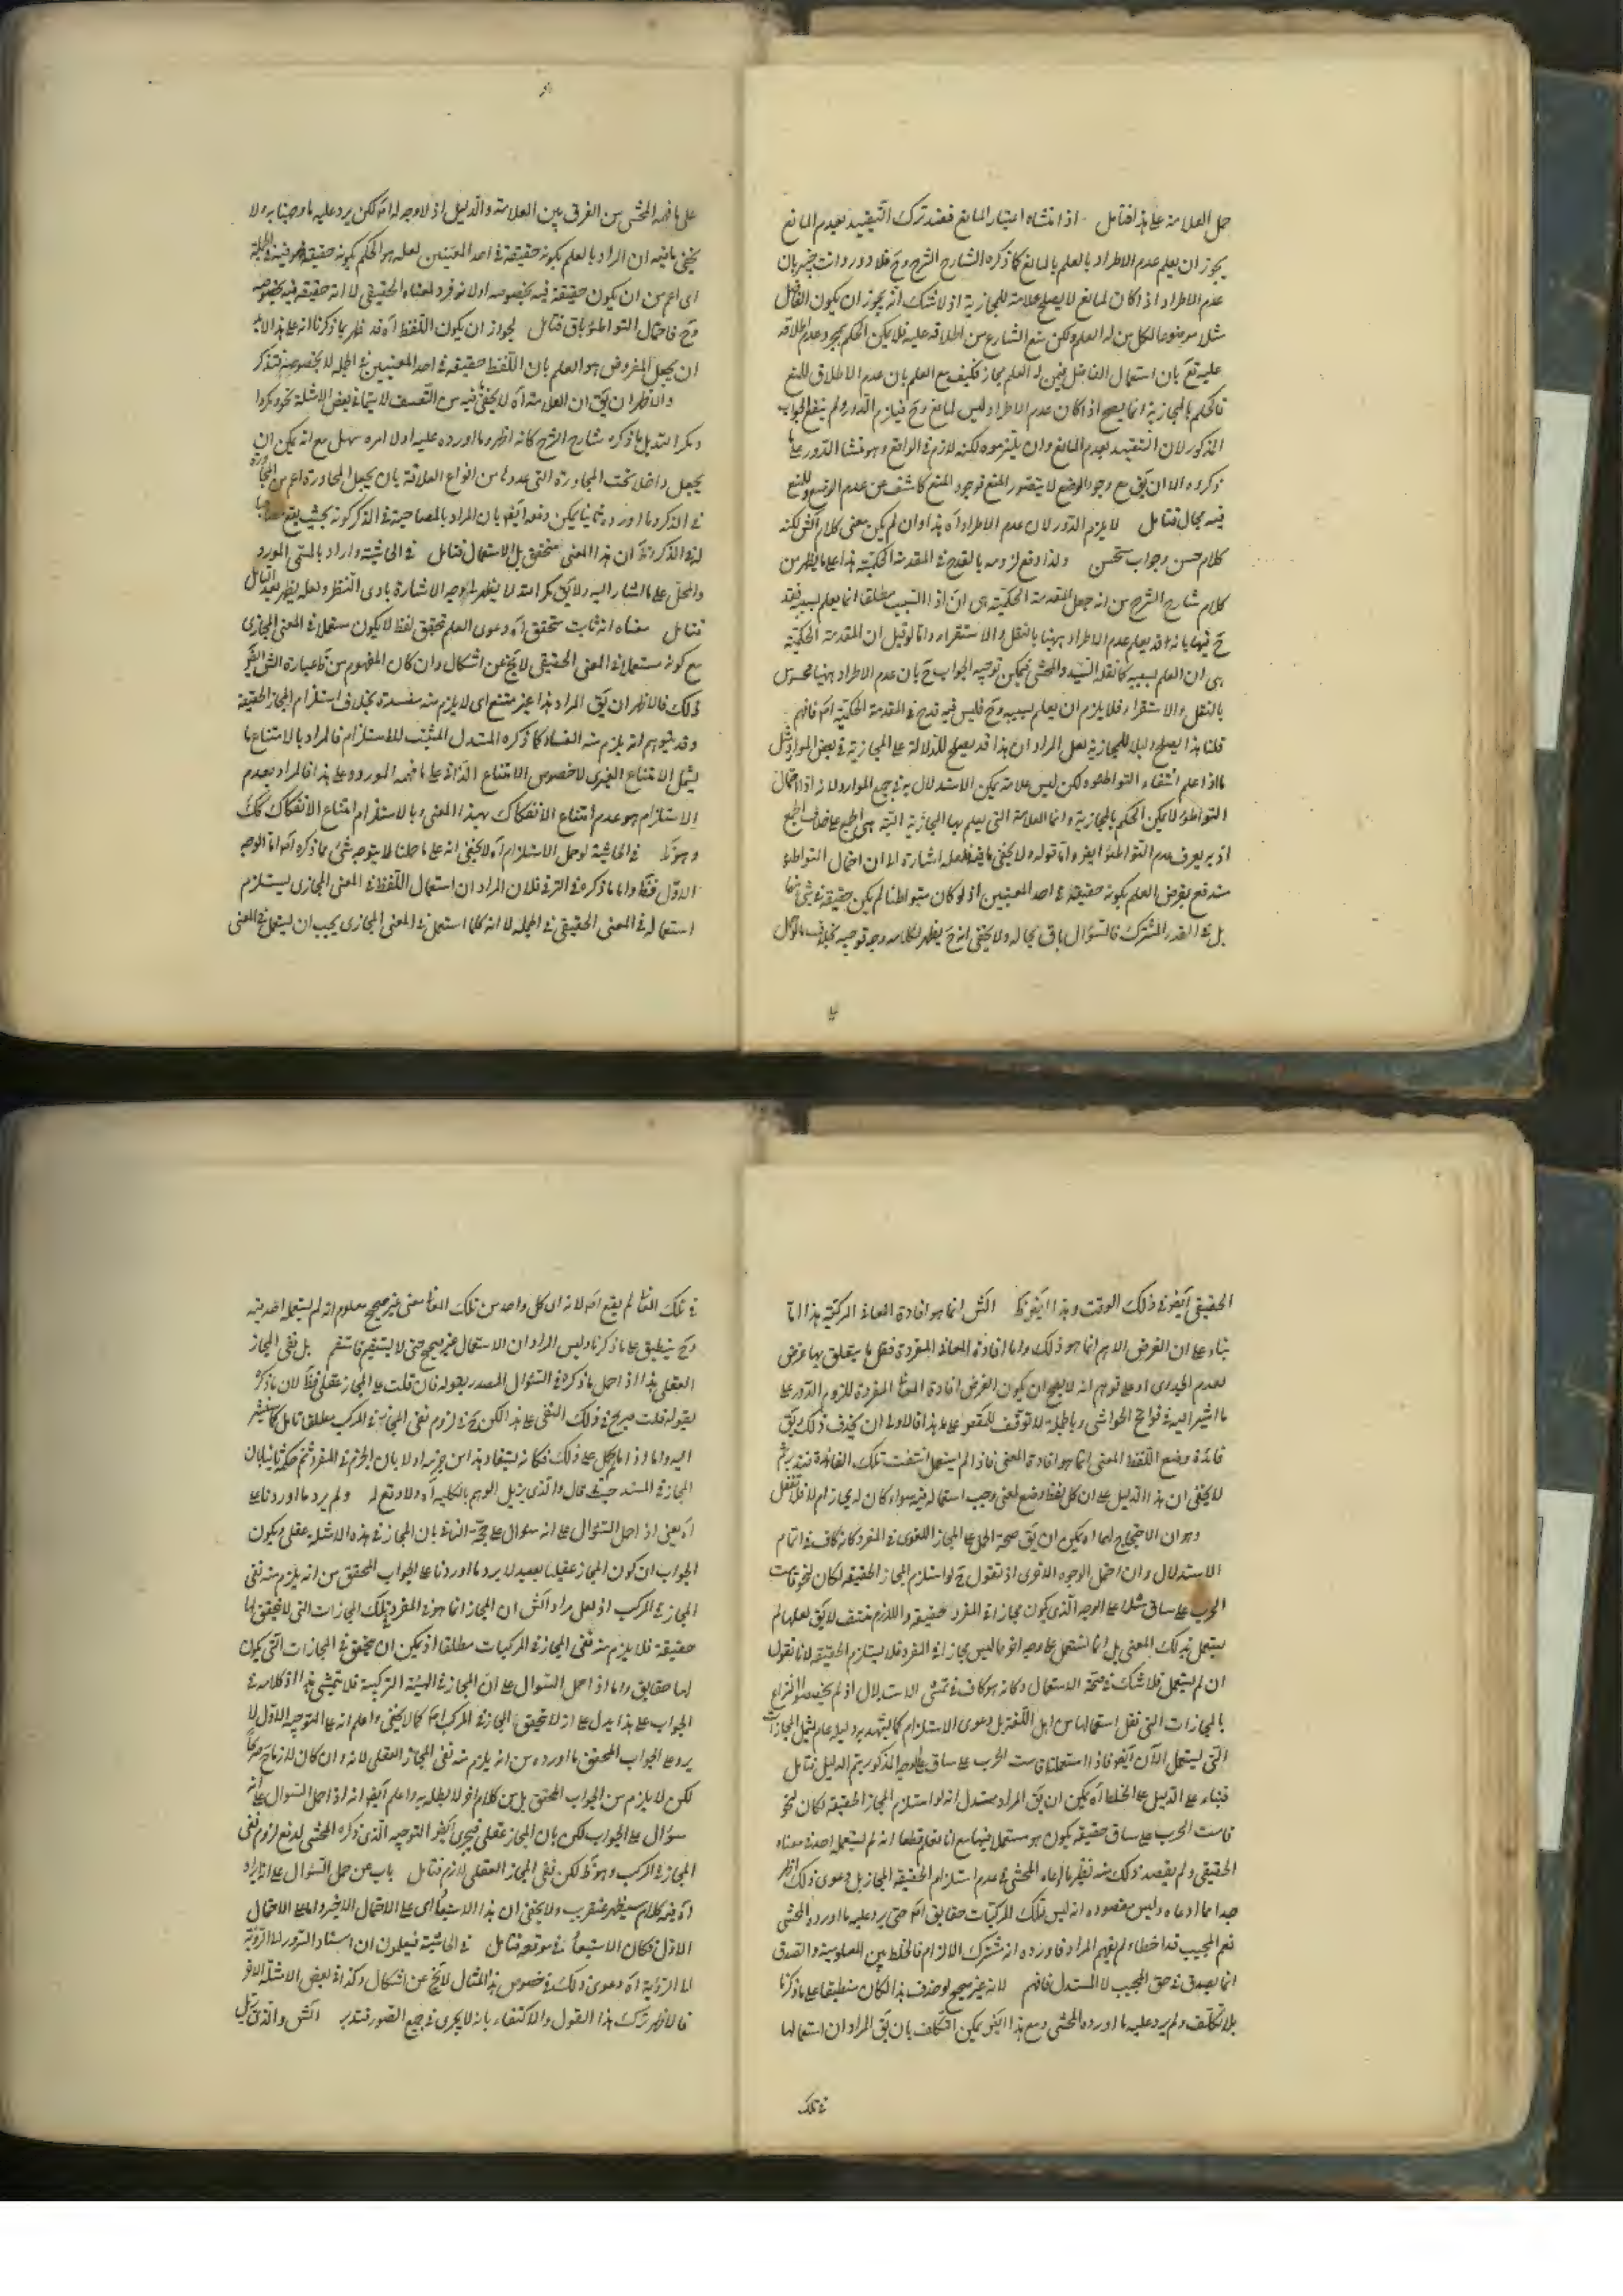 حمل العلامة على هذا فتامل اذ انتشاه اعتبار المانع فقد ترك التقييد بعدم المانع
يجوز ان يعلم عدم الاطراد بالعلم بالمانع كما ذكره الشارح الشرح وح فلا دور وانت خبير بان
عدم الاطراد اذا كان لمانع لا يصلح علامة للمجازية اذ لا شك انه يجوز ان يكون الفاضل
مثلا موضوعا لكل من له العلم ولكن منع الشارع من اطلاقه عليه فلا يمكن الحكم بمجرد عدم اطلاقه
عليه تع بان استعمال الفاضل فيمن له العلم مجاز فكيف مع العلم بان عدم الاطلاق للمنع
فالحكم بالمجازية انما يصح اذا كان عدم الاطراد ليس لمانع وح فيلزم الدور ولم ينفع الجواب
المذكور لان التقييد بعدم المانع وان لم يلتزموه لكنه لازم في الواقع وهو منشا الدور على ما
ذكروه الا ان يق مع وجود الوضع لا يتصور المنع فوجود المنع كاشف عن عدم الوضع وللمنع
فيه مجال فتامل لا يلزم الدور لان عدم الاطراد اه هذا وان لم يكن معنى كلام الش لكنه
كلام حسن وجواب مستحسن ولذا دفع لزومه بالقدح في المقدمة الحكمية هذا على ما يظهر من
كلام شارح الشرح من انه جعل المقدمة الحكمية هي ان ذا السبب مطلقا انما يعلم بسببه فقدح
ح فيها بانه قد يعلم عدم الاطراد ههنا بالنقل والاستقراء واما لو قيل ان المقدمة الحكمية
هي ان العلم بسببه كما نقله السيد والمحشي فيمكن توجيه الجواب ح بان عدم الاطراد ههنا محسوس
بالنقل والاستقراء فلا يلزم ان يعلم بسببه وح فليس فيه قدح في المقدمة الحكمية اصلا فافهم
قلنا هذا يصلح دليلا للمجازية لعل المراد ان هذا قد يصلح للدلالة على المجازية في بعض الموارد مثل
ما اذا علم انتفاء التواطؤ ولكن ليس علامة يمكن الاستدلال به في جميع الموارد لانه اذا احتمل
التواطؤ لا يمكن الحكم بالمجازية وانما العلامة التي يعلم بها المجازية البتة هي الجمع على خلاف الجمع
اذ به يعرف عدم التواطؤ ايضا واما قوله ولا يخفى ما فيه فلعله اشارة الى ان احتمال التواطؤ
مندفع بفرض العلم بكونه حقيقة في احد المعنيين اذ لو كان متواطئا لم يكن حقيقة في شيء منهما
بل في القدر المشترك فالسؤال باق بحاله ولا يخفى انه ح يظهر لكلامه وجه توجيه بخلاف ما لو حمل
على ما فهمه المحشي من الفرق بين العلامة والدليل اذ لا وجه له اصلا لكن يرد عليه ما وجهنا به ولا
يخفى ما فيه ان المراد بالعلم بكونه حقيقة في احد المعنيين لعله هو الحكم بكونه حقيقة فيه في الجملة
اي اعم من ان يكون حقيقة فيه بخصوصه او لانه فرد لمعناه الحقيقي لا انه حقيقة فيه بخصوصه
وح فاحتمال التواطؤ باق فتامل لجواز ان يكون اللفظ اه قد ظهر بما ذكرنا انه على هذا لا بد
ان يجعل المفروض هو العلم بان اللفظ حقيقة في احد المعنيين في الجملة لا بخصوصه فتذكر
والاظهر ان يق ان العلامة اه لا يخفى ما فيه من التعسف لا سيما في بعض الامثلة نحو ومكروا
ومكر الله بل ما ذكره شارح الشرح كانه اظهر وما اورده عليه اولا امره سهل مع انه يمكن ان
يجعل داخلا تحت المجاورة التي عدوها من انواع العلاقة بان يجعل المجاورة اعم من المجاورة
في الذكر وما اورده ثانيا يمكن دفعه ايضا بان المراد بالمصاحبة في الذكر كونه بحيث يقع مصاحبا
له في الذكر وهذا المعنى متحقق قبل الاستعمال فتامل في الحاشية واراد بالمعنى المورد
والمحل على ما اشار اليه ولا يق كراهته لا يظهر وجه الاشارة بادى النظر ولعله يظهر بعد التامل
فتامل معناه انه ثابت متحقق اه دعوى العلم تحقق لفظ لا يكون مستعملا في المعنى المجازي
مع كونه مستعملا في المعنى الحقيقي لا يخ عن اشكال وان كان المفهوم من ظ عبارة الش ايضا
ذلك فالاظهر ان يق المراد بهذا غير ممتنع اي لا يلزم منه مفسدة بخلاف استلزام المجاز الحقيقة
وقد توهم انه يلزم منه الفساد كما ذكره المستدل المثبت للاستلزام فالمراد بالامتناع ما
يشمل الامتناع الغيري لا خصوص الامتناع الذاتي على ما فهمه المورد وعلى هذا فالمراد بعدم
الاستلزام هو عدم امتناع الانفكاك بهذا المعنى وبالاستلزام امتناع الانفكاك كك
وهو ظ في الحاشية لو حمل الاستلزام اه لا يخفى انه على ما حملنا لا يتوجه شئ مما ذكره اصلا اما الوجه
الاول فظ واما ما ذكره في الترقي فلان المراد ان استعمال اللفظ في المعنى المجازي يستلزم
استعماله في المعنى الحقيقي في الجملة لا انه كلما استعمل في المعنى المجازي يجب ان يستعمل في المعنى
الحقيقي ايضا في ذلك الوقت وهذا ايضا ظ الش انما هو افادة المعاني المركبة هذا اما
بناء على ان الغرض الاهم انما هو ذلك واما افادة المعاني المفردة فقل ما يتعلق بها غرض
لعدم الجدوى او على توهم انه لا يصح ان يكون الغرض افادة المعاني المفردة للزوم الدور على
ما اشير اليه في فواتح الحواشي
فائدة وضع اللفظ لمعنى انما هو افادة المعنى فاذا لم يستعمل انتفت تلك الفائدة فتدبر ثم
لا يخفى ان هذا الدليل على ان كل لفظ وضع لمعنى وجب استعماله فيه سواء كان له مجاز ام لا فلا تغفل
وهو ان الاحتياج لهما اه يمكن ان يق صحة الحمل على المجاز اللغوي في المفرد كانه كاف في اتمام
الاستدلال وان احتمل الوجوه الاخرى اذ نقول ح لو استلزم المجاز الحقيقة لكان لنحو قامت
الحرب على ساق مثلا على الوجه الذي يكون مجازا في المفرد حقيقة واللازم منتف لا يق لعلها لم
يستعمل بذلك المعنى بل انما استعمل على وجه اخر ما ليس مجازا في المفرد فلا يستلزم الحقيقة لانا نقول
ان لم يستعمل فلا شك في صحة الاستعمال وكانه هو كاف في تمشي الاستدلال اذ لم يخصصوا النزاع
بالمجازات التي نقل استعمالها من اهل اللغة بل دعوى الاستلزام كما يشهد به دليله عام يشمل المجازات
التي يستعمل الآن ايضا فاذا استعملنا قامت الحرب على ساق على الوجه المذكور يتم الدليل فتامل
فبناء على الدليل على الخلط اه يمكن ان يق المراد مستدل انه لو استلزم المجاز الحقيقة لكان لنحو
قامت الحرب على ساق حقيقة يكون هو مستعملا فيها مع انا نعلم قطعا انه لم يستعمله احد في معناه
الحقيقي ولم يقصد ذلك منه نظير ما ادعاه المحشي في عدم استلزام الحقيقة المجاز بل دعوى ذلك اظهر
جدا مما ادعاه وليس مقصوده انه ليس لتلك المركبات حقايق اصلا حتى يرد عليه ما اورده المحشي
نعم المجيب قد اخطاء لم يفهم المراد فاورده انه مشترك الالزام فالخلط بين المعلومية والصدق
انما يصدق في حق المجيب لا المستدل فافهم لانه غير صحيح لو حذف هذا لكان منطبقا على ما ذكرنا
بلا تكلف ولم يرد عليه ما اورده المحشي ومع هذا ايضا يمكن التكلف بان يق المراد ان استعمالها
في تلك
في تلك المعاني لم يقع اصلا لانه ان كل واحد من تلك المعاني معنى غير صحيح معلوم انه لم يستعمله احد فيه
وح ينطبق على ما ذكرنا وليس المراد ان الاستعمال غير صحيح حتى لا يستقيم فاستقم بل نفي المجاز
العقلي هذا اذا حمل ما ذكره في السؤال المصدر بقوله فان قلت على المجاز عقلي فظ لان ما ذكره
بقوله قلت صريح في ذلك النفي على هذا
اليه واما اذا لم يحمل على ذلك فكانه يستفاد هذا من جزمه اولا بان الجزم في المفرد ثم حكمه ثانيا بان
المجاز في المسند حيث قال والذي يزيل الوهم بالكلية اه ولا دفع له ولم يرد ما اوردناه على
اه يعني اذا حمل السؤال على انه سؤال على حجة النافي بان المجاز في هذه الامثلة عقلي ويكون
الجواب ان كون المجاز عقليا بعيد لا يرد ما اوردنا على الجواب المحقق من انه يلزم منه نفي
المجاز في المركب اذ لعل مراد الش ان المجاز انما هو في المفرد في تلك المجازات التي لا تحقق لها
حقيقة فلا يلزم منه نفي المجاز في المركبات مطلقا اذ يمكن ان يتحقق في المجازات التي يكون
لها حقايق واما اذا حمل السؤال على ان المجاز في الهيئة التركيبية فلا يتمشى هذا اذ كلامه في
الجواب على هذا يدل على انه لا تحقق للمجاز في المركب اصلا كما لا يخفى واعلم انه على التوجيه الاول لا
يرد على الجواب المحقق ما اورده من انه يلزم منه نفي المجاز العقلي لانه وان كان لازما ح
لكن لا يلزم من الجواب المحقق بل من كلام اخر لا بطلبه واعلم ايضا انه اذا حمل السؤال على انه
سؤال على الجواب لكن بان المجاز عقلي فيجري ايضا التوجيه الذي ذكره المحشي لدفع لزوم نفي
المجاز في المركب وهو ظ لكن نفي المجاز العقلي لازم فتامل باب من حمل السؤال على الايراد
اه فيه كلام سيظهر عنقريب ولا يخفى ان هذا الاستبعاد اي على الاحتمال الاخير واما على الاحتمال
الاول فكان الاستبعاد في موقعه فتامل في الحاشية فيعلمون ان اسناد السرور الى الرؤية
لا الرؤية اه دعوى ذلك في خصوص هذا المثال لا يخ عن اشكال وكذا في بعض الامثلة الاخر
فالاظهر ترك هذا القول والاكتفاء بانه لا يجري في جميع الصور فتدبر الش والذي يزيل